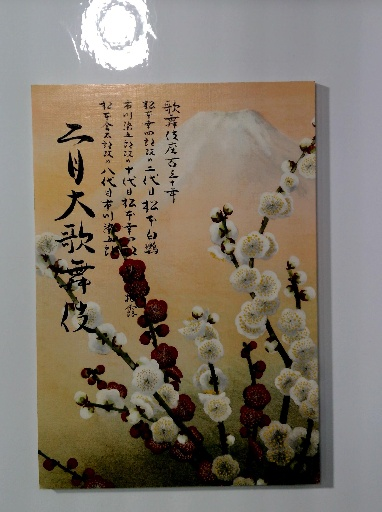 歌舞伎座百三十年
松本幸四郎改め二代目松本白鸚
市川染五郎改め十代目松本幸四郎
松本金太郎改め八代目市川染五郎
襲名披露
二月大歌舞伎